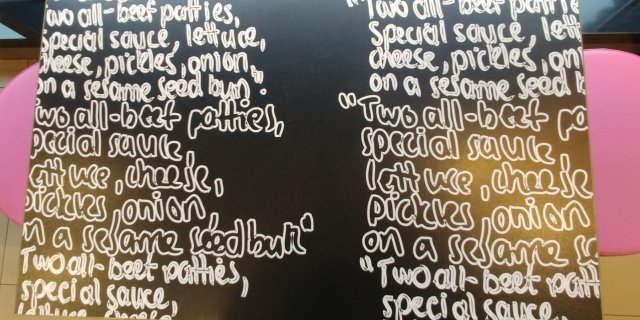 Two all-beef patties,
special sauce, lettuce,
cheese, pickles, onion
on a sesame seed bun".
Two all-beef patties,
special sauce,
lettuce, cheese,
pickles onion
on a sesame seed bun"
Two all-beef patties,
special sauce,
lettuce, cheese,
"Two all-beef patties
special sauce, lettuce
cheese, pickles, onion
on a sesame seed b
"Two all-beef pa
special sauce,
lettuce, cheese
pickles, onion
on a sesame se
"Two all-beef patt
special sauce,